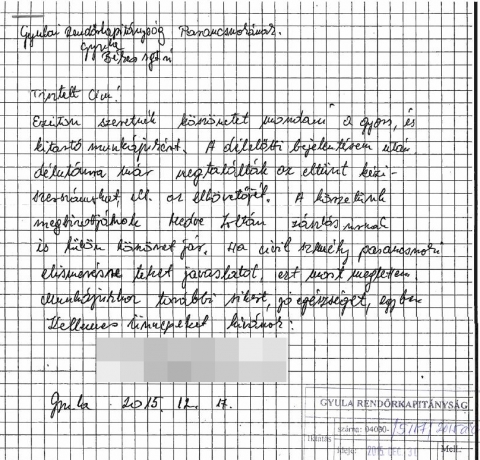 Gyulai Rendőrkapitányság Parancsnokának.
Gyula
Tisztelt Cím!
Ezúton szeretnék köszönetet mondani a gyors, és
kitartó munkájukért. A délelőtti bejelentésem után
délutánra már megtalálták az eltünt kézi-
szerszámokat, ill. az elkövetőjét. A körzetünk
megbizottjának Medve Zoltán zászlós urnak
is külön köszönet jár. Ha civil személy parancsnoki
elismerésre tehet javaslatot, ezt most megtetem.
Munkájukhoz további sikert, jó egészséget, egyben
Kellemes Ünnepeket kívánok:
Gyula 2015. 12. 17.
GYULA RENDŐRKAPITÁNYSÁG
száma: 04030-
Iktatás
ideje: 2015 DEC.
Mell.: